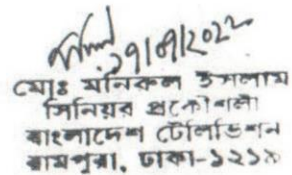 ২৭/০৭/২০২২
মোঃ মনিরুল ইসলাম
সিনিয়র প্রকৌশলী
বাংলাদেশ টেলিভিশন
রামপুরা, ঢাকা-১২১৯